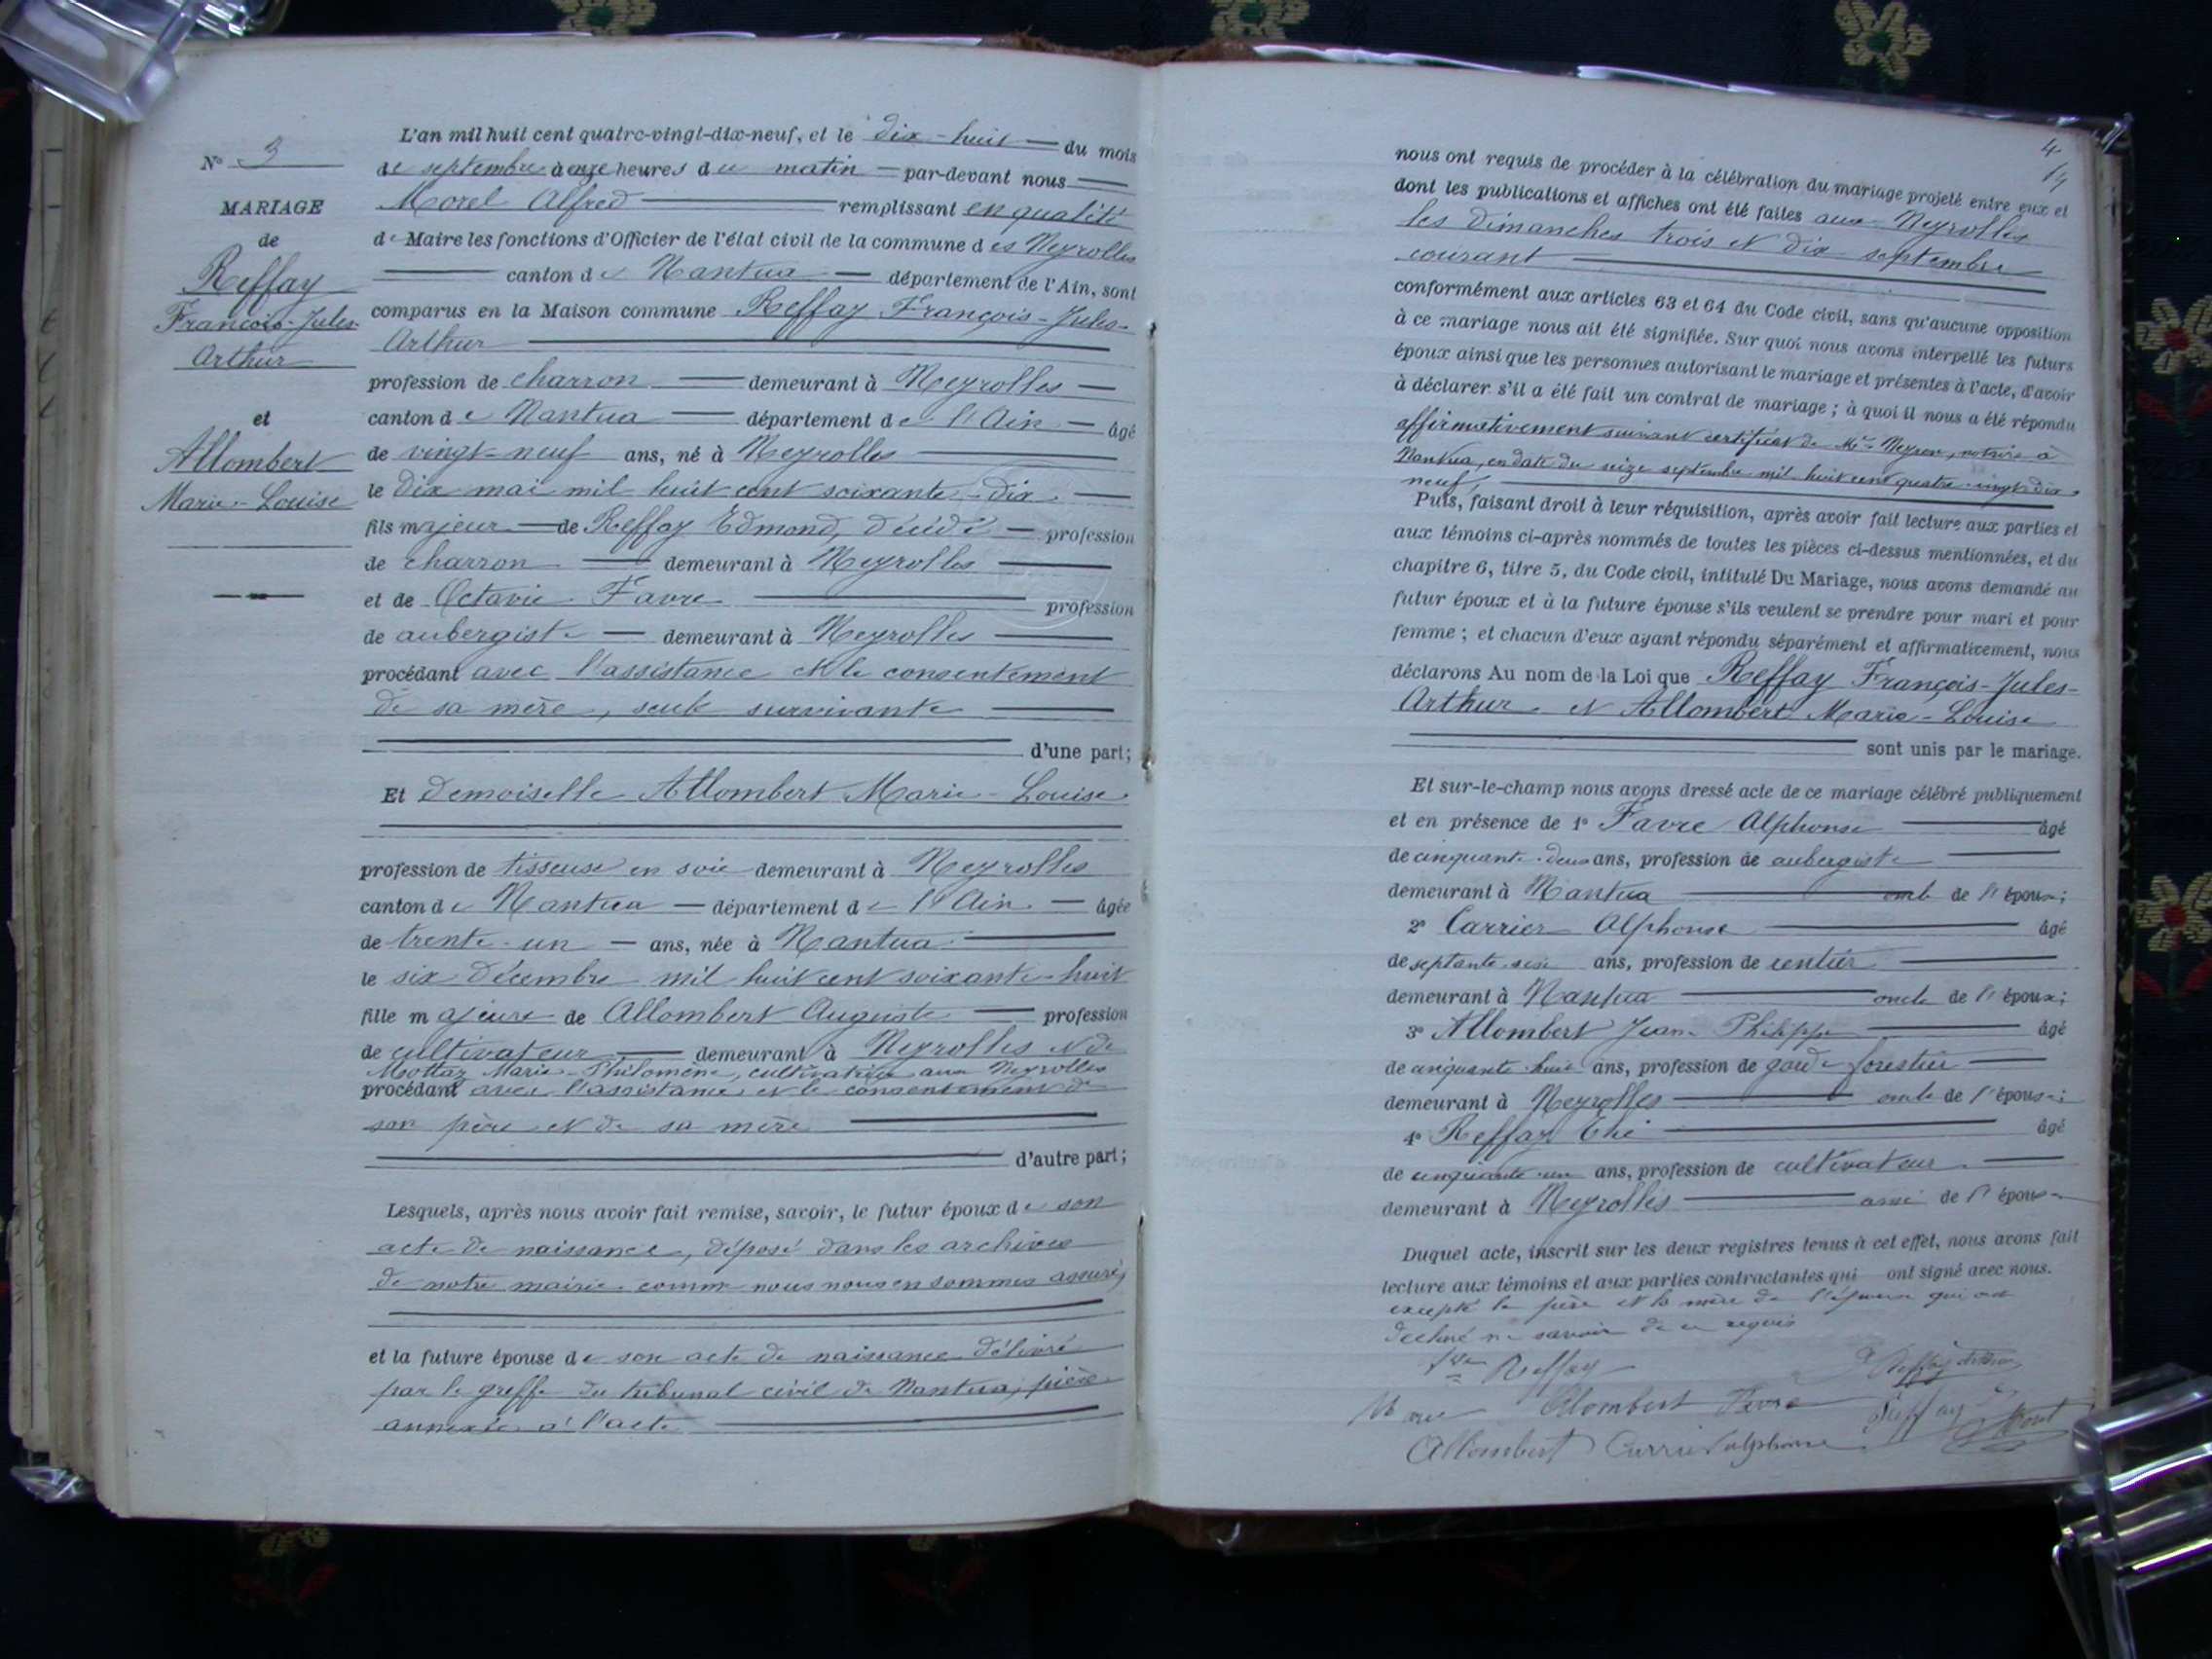 N° 3
MARIAGE
de
Reffay
François-Jules-
Arthur
et
Allombert
Marie-Louise
L'an mil huit cent quatre-vingt-dix-neuf, et le dix-huit du mois
de septembre à onze heures du matin par-devant nous
Morel Alfred remplissant en qualité
de Maire les fonctions d'Officier de l'état civil de la commune des Neyrolles
canton de Nantua département de l'Ain, sont
comparus en la Maison commune Reffay François-Jules-
Arthur
profession de charron demeurant à Neyrolles
canton de Nantua département de l'Ain âgé
de vingt-neuf ans, né à Neyrolles
le dix mai mil huit cent soixante-dix
fils majeur de Reffay Edmond, décédé profession
de charron demeurant à Neyrolles
et de Octavie Favre profession
de aubergiste demeurant à Neyrolles
procédant avec l'assistance et le consentement
de sa mère, seule survivante
d'une part;
Et demoiselle Allombert Marie-Louise
profession de tisseuse en soie demeurant à Neyrolles
canton de Nantua département de l'Ain âgée
de trente-un ans, née à Nantua
le six décembre mil huit cent soixante-huit
fille majeure de Allombert Auguste profession
de cultivateur demeurant à Neyrolles et de
Mottaz Marie-Philomène, cultivatrice aux Neyrolles
procédant avec l'assistance et le consentement de
son père et de sa mère
d'autre part;
Lesquels, après nous avoir fait remise, savoir, le futur époux de son
acte de naissance, déposé dans les archives
de notre mairie comme nous nous en sommes assuré,
et la future épouse de son acte de naissance délivré
par le greffe du tribunal civil de Nantua, pièce
annexée à l'acte
4
nous ont requis de procéder à la célébration du mariage projeté entre eux et
dont les publications et affiches ont été faites aux Neyrolles
les dimanches trois et dix septembre
courant
conformément aux articles 63 et 64 du Code civil, sans qu'aucune opposition
à ce mariage nous ait été signifiée. Sur quoi nous avons interpellé les futurs
époux ainsi que les personnes autorisant le mariage et présentes à l'acte, d'avoir
à déclarer s'il a été fait un contrat de mariage; à quoi il nous a été répondu
affirmativement suivant certificat de Me Neyron, notaire à
Nantua, en date du seize septembre mil huit cent quatre-vingt-dix-
neuf,
Puis, faisant droit à leur réquisition, après avoir fait lecture aux parties et
aux témoins ci-après nommés de toutes les pièces ci-dessus mentionnées, et du
chapitre 6, titre 5, du Code civil, intitulé Du Mariage, nous avons demandé au
futur époux et à la future épouse s'ils veulent se prendre pour mari et pour
femme; et chacun d'eux ayant répondu séparément et affirmativement, nous
déclarons Au nom de la Loi que Reffay François-Jules-
Arthur et Allombert Marie-Louise
sont unis par le mariage.
Et sur-le-champ nous avons dressé acte de ce mariage célébré publiquement
et en présence de 1° Favre Alphonse âgé
de cinquante-deux ans, profession de aubergiste
demeurant à Nantua oncle de l'époux;
2° Carrier Alphonse âgé
de septante-six ans, profession de rentier
demeurant à Nantua oncle de l'époux;
3° Allombert Jean Philippe âgé
de cinquante-huit ans, profession de garde forestier
demeurant à Neyrolles oncle de l'épouse;
4° Reffay âgé
de cinquante-un ans, profession de cultivateur
demeurant à Neyrolles ami de l'épouse
Duquel acte, inscrit sur les deux registres tenus à cet effet, nous avons fait
lecture aux témoins et aux parties contractantes qui ont signé avec nous.
excepté le père et la mère de l'épouse qui ont
déclaré ne savoir de ce requis
Reffay
Allombert Favre Reffay
Allombert Carrier alphonse